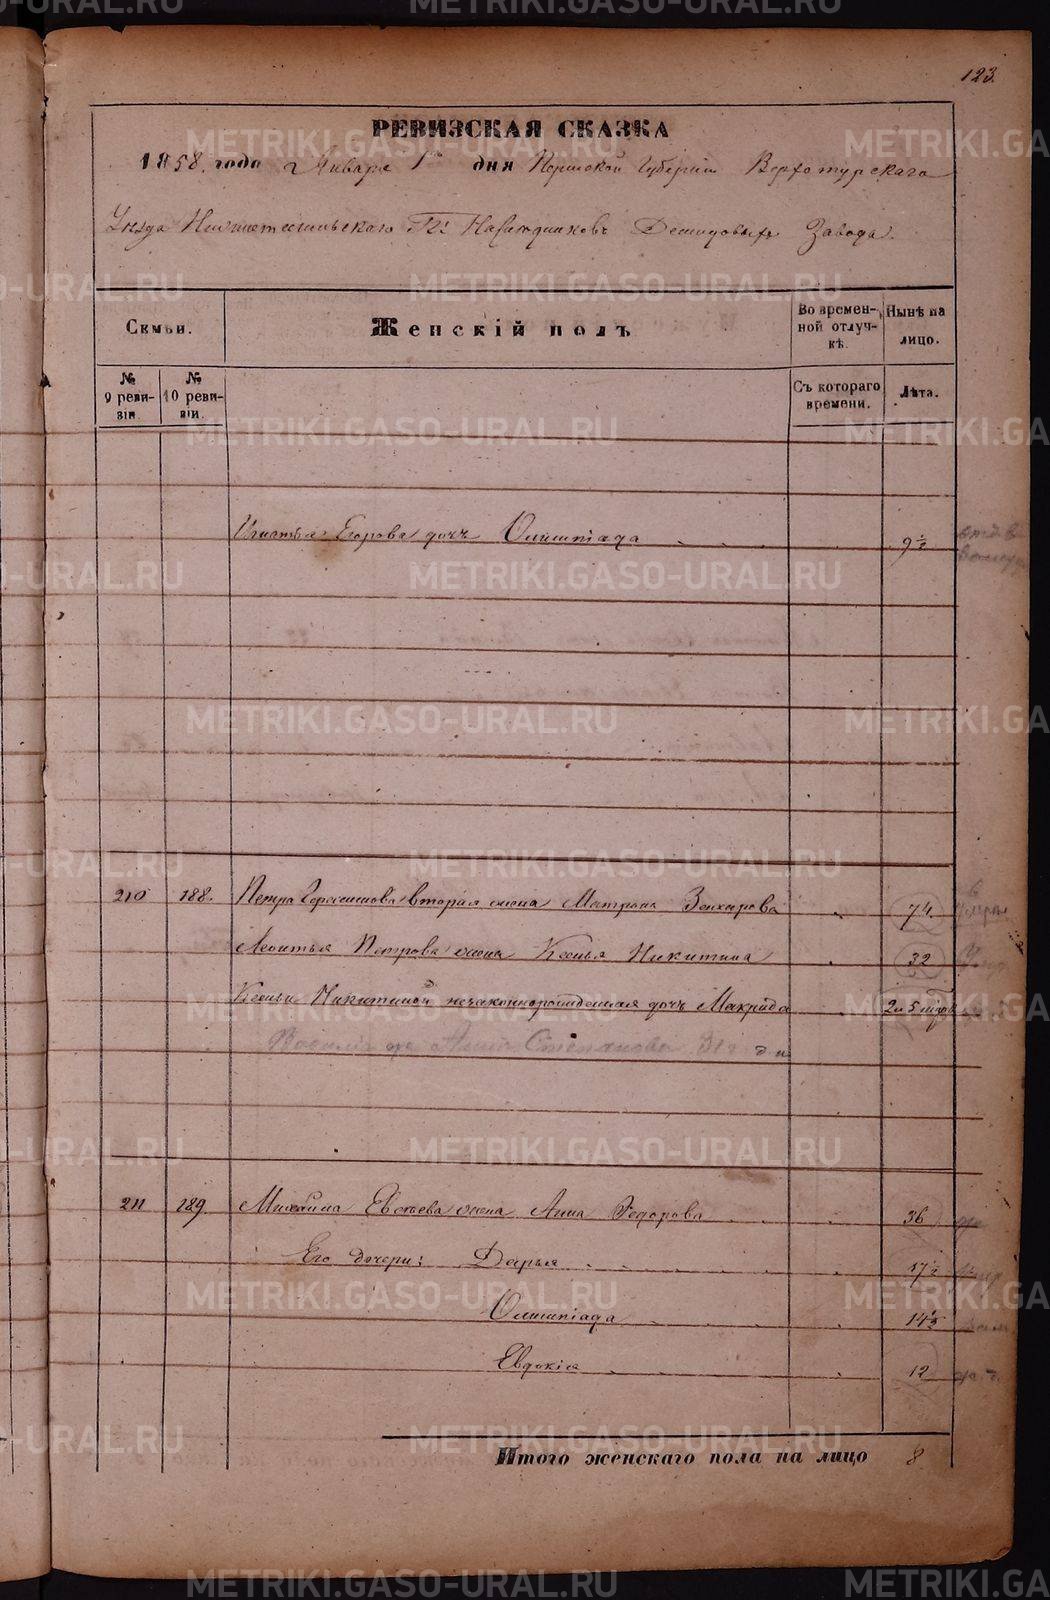 123.
РЕВИЗСКАЯ СКАЗКА
1858. года Января 1го дня Пермской Губернии Верхотурскаго
Уезда Нижнетагильскаго Гг: Наследниковъ Демидовыхъ Завода.
Семьи.
Женскій полъ
Во времен-
ной отлуч-
кѣ.
Нынѣ на
лицо.
№
9 реви-
зіи.
№
10 реви-
зіи.
Съ котораго
времени.
Лѣта.
Игнатья Егорова дочь Олимпіада 9 ½
210 188. Петра Герасимова вторая жена Матрона 74.
Леонтья Петрова жена Ксенья Никитина 32
Ксеньи Никитиной незаконнорожденная дочь Макрида 2 и 5 мѣс
Анна Степанова
211 189. Михайла Евсѣева жена Анна Федорова 36
Его дочери: Дарья 17 ½
Олимпіада 14 ½
Евдокія 12
Итого женскаго пола на лицо 8
METRIKI.GASO-URAL.RU